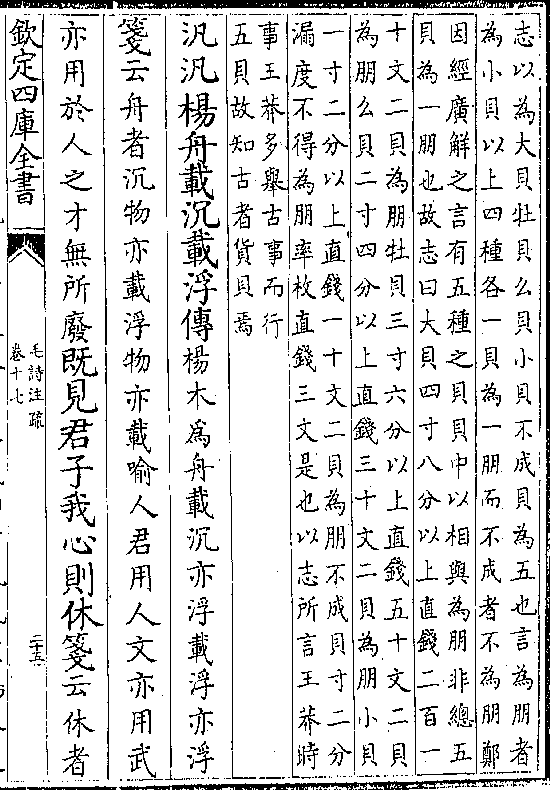 志以為大貝牡貝么貝小貝不成貝為五也言為朋者
為小貝以上四種各一貝為一朋而不成者不為朋鄭
因經廣解之言有五種之貝貝中以相與為朋非總五
貝為一朋也故志曰大貝四寸八分以上直錢二百一
十文二貝為朋牡貝三寸六分以上直錢五十文二貝
為朋么貝二寸四分以上直錢三十文二貝為朋小貝
一寸二分以上直錢一十文二貝為朋不成貝寸二分
漏度不得為朋率枚直錢三文是也以志所言王莽時
事王莽多舉古事而行
五貝故知古者貨貝焉
汎汎楊舟載沉載浮傳楊木為舟載沉亦浮載浮亦浮
箋云舟者沉物亦載浮物亦載喻人君用人文亦用武
亦用於人之才無所廢既見君子我心則休箋云休者
欽定四庫全書
毛詩注疏
卷十七
二十五